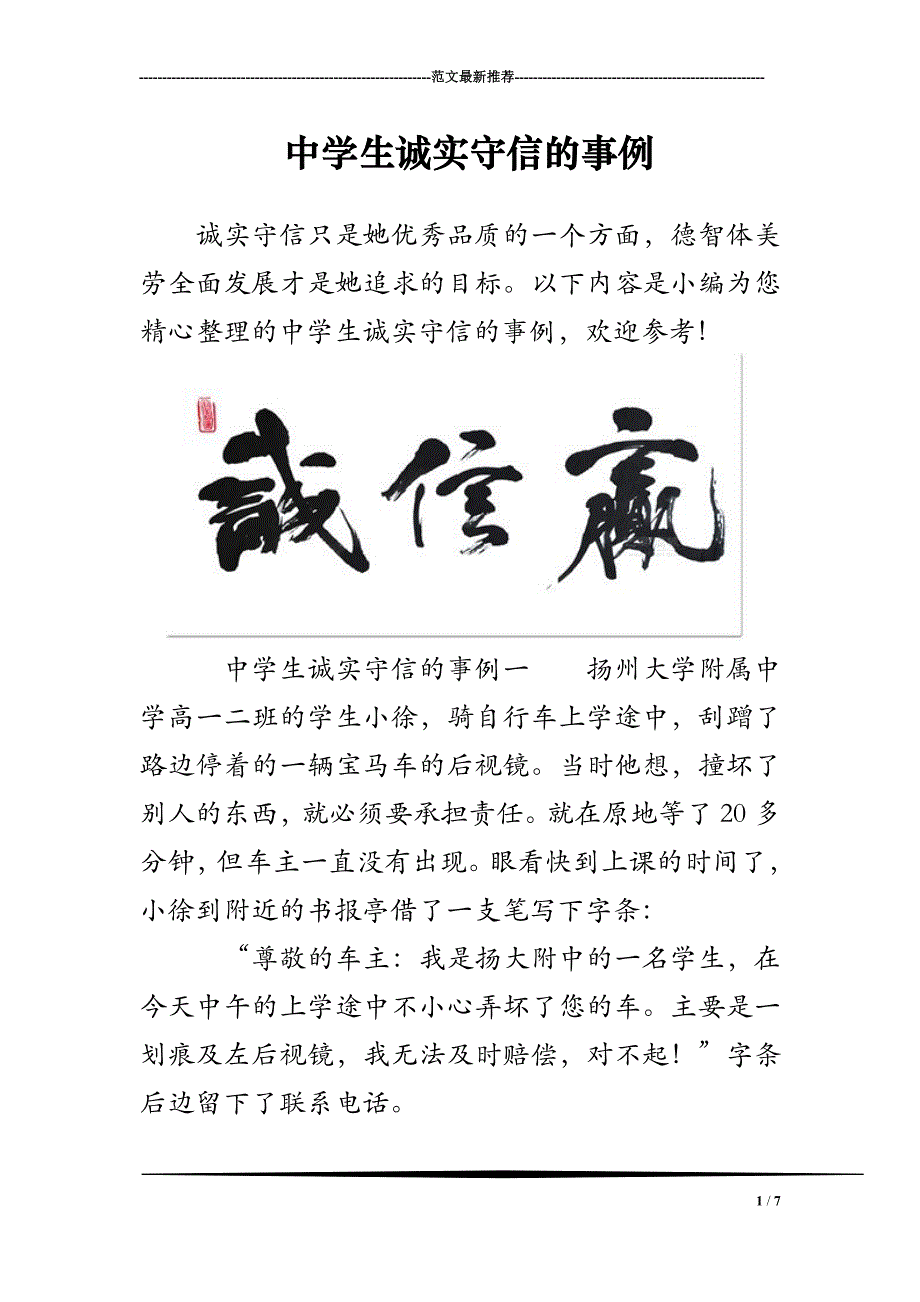 ------------------------------------------------------------------范文最新推荐---------------------------------------------------------
中学生诚实守信的事例
诚实守信只是她优秀品质的一个方面，德智体美
劳全面发展才是她追求的目标。以下内容是小编为您
精心整理的中学生诚实守信的事例，欢迎参考！
誠信贏
中学生诚实守信的事例一　　扬州大学附属中
学高一二班的学生小徐，骑自行车上学途中，刮蹭了
路边停着的一辆宝马车的后视镜。当时他想，撞坏了
别人的东西，就必须要承担责任。就在原地等了 20 多
分钟，但车主一直没有出现。眼看快到上课的时间了，
小徐到附近的书报亭借了一支笔写下字条：
“尊敬的车主：我是扬大附中的一名学生，在
今天中午的上学途中不小心弄坏了您的车。主要是一
划痕及左后视镜，我无法及时赔偿，对不起！”字条
后边留下了联系电话。
1 / 7